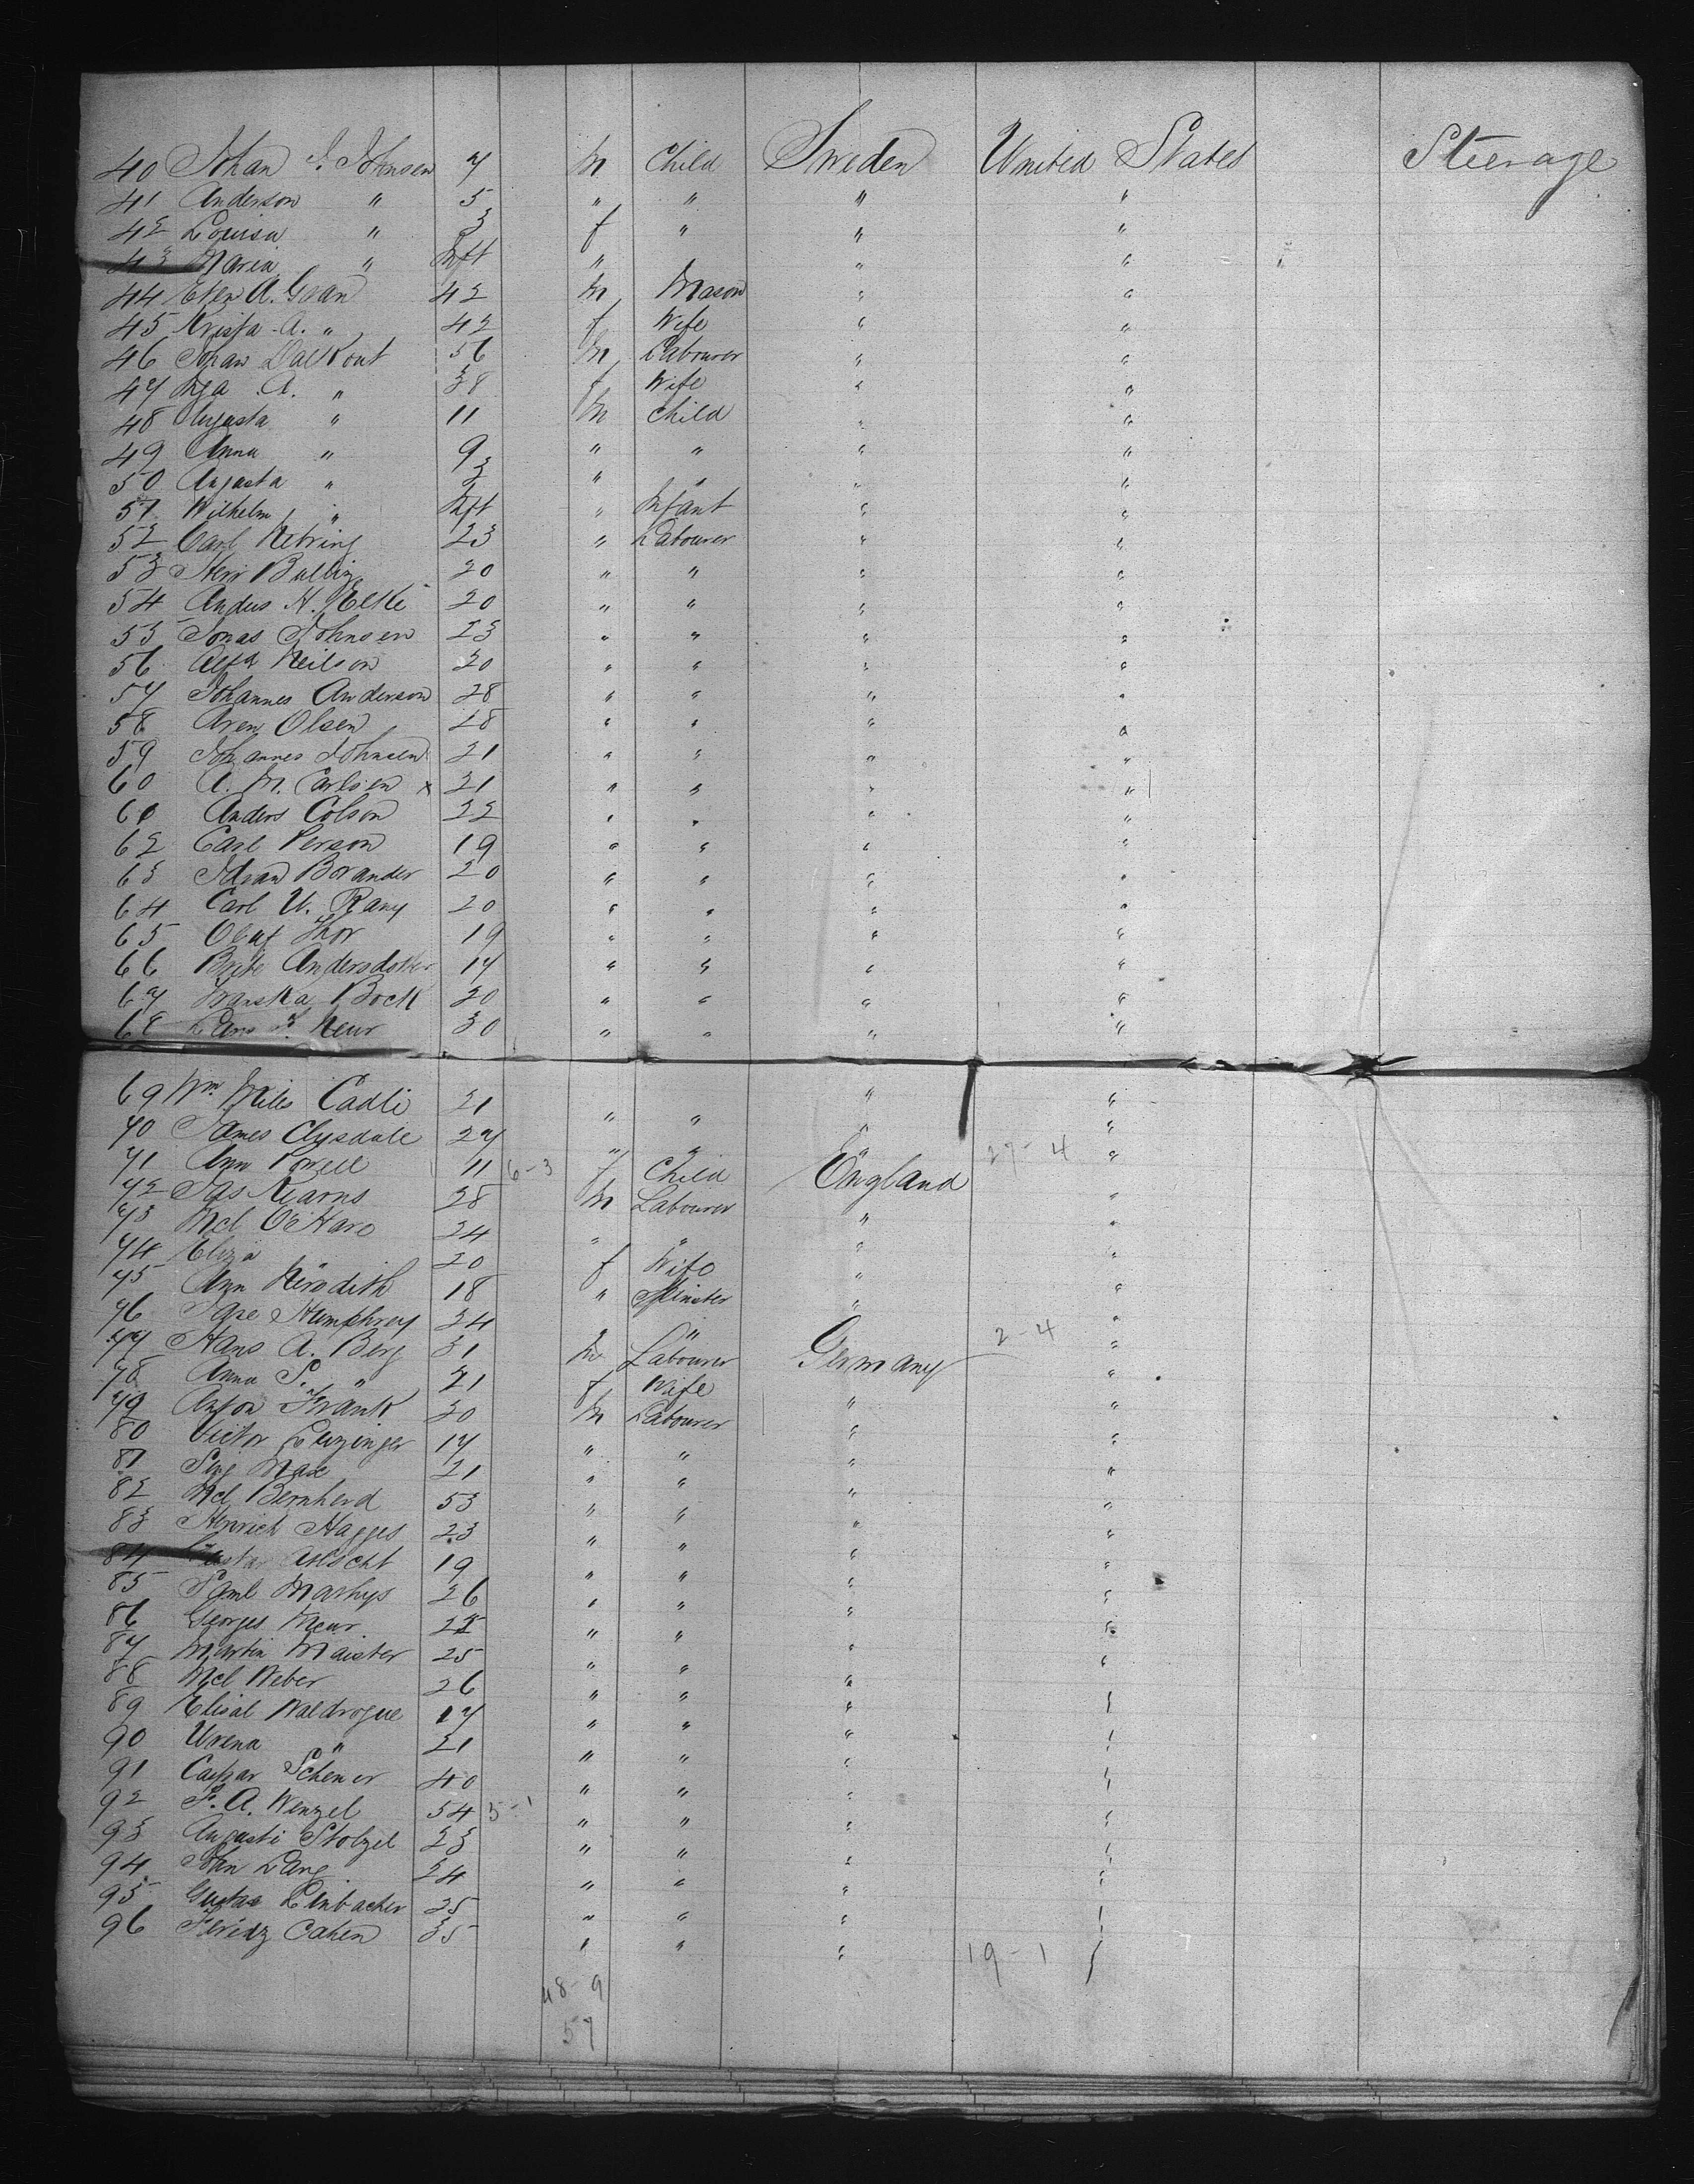 40 Johan J. Johnsen 7 m Child Sweden United States Steerage
41 Anderson " 5 " " " "
42 Louisa " 3 f " " "
43 Maria " Inft " " "
44 A. 42 m Mason " "
45 A. " 42 f Wife " "
46 Johan 56 m Labourer " "
47 A. " 38 f Wife " "
48 Augusta " 11 m Child " "
49 Anna " 9 " " " "
50 Augasta " 3 " " " "
51 Wilhelm " Inft " Infant " "
52 Carl 23 " Labourer " "
53 20 " " " "
54 Andus H. 20 " " " "
55 Jonas Johnsen 23 " " " "
56 Neilson 20 " " " "
57 Johannes Anderson 28 " " " "
58 Aren Olsen 28 " " " "
59 Johannes Johnsen 21 " " " "
60 A. M. Carlsen x 21 " " " "
61 Anders Colson 22 " " " "
62 Carl Person 19 " " " "
63 Borander 20 " " " "
64 Carl U. Rany 20 " " " "
65 Oluf Thor 19 " " " "
66 Brite Andersdotter 17 " " " "
67 Bock 20 " " " "
68 30 " " " "
69 Wm. Miles Cadli 21 " " " "
70 James Clysdale 27 " " " "
71 Ann Powell 11 6-3 f Child England 27-4 "
72 Jas Kearns 28 m Labourer " "
73 Mcl O'Haro 24 " " " "
74 Eliza " 20 f Wife " "
75 Ann Merodith 18 " Spinster " "
76 Jane Humphrey 24 " " " "
77 Hans A. Berg 31 m Labourer Germany 2-4 "
78 Anna S. " 21 f Wife " "
79 Anton Frank 30 m Labourer " "
80 Victor 17 " " " "
81 21 " " " "
82 Mcl Bernherd 53 " " " "
83 Henrich Hagges 23 " " " "
84 19 " " " "
85 Saml Mathys 26 " " " "
86 Georges Meur " " " "
87 Martin Maister 25 " " " "
88 Mcl Weber 26 " " " "
89 Elisal Waldrogue 17 " " "
90 Urena " 21 " " "
91 Caspar Schener 40 " " "
92 A. Wenzel 54 5-1 " " "
93 Augasti Stolzel 23 " " "
94 John Lang 24 " " "
95 Gustav Linbacher 25 " " "
96 Cahen 35 " " " 19-1
48-9
57